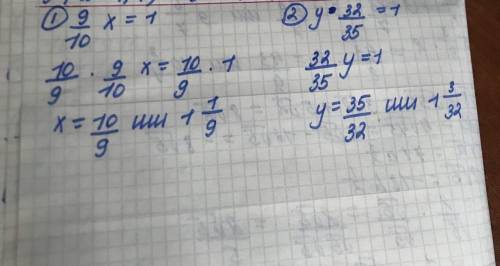 ① 9/10 x = 1
10/9 · 9/10 x = 10/9 · 1
x = 10/9 или 1 1/9
② y · 32/35 = 1
32/35 y = 1
y = 35/32 или 1 3/32